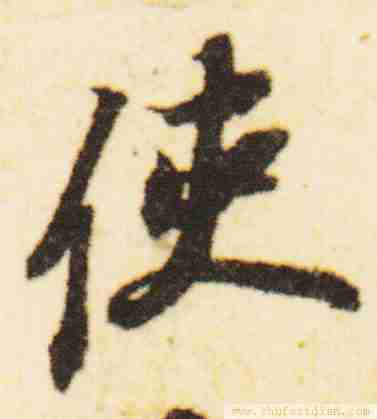 使
www.shufazidian.com